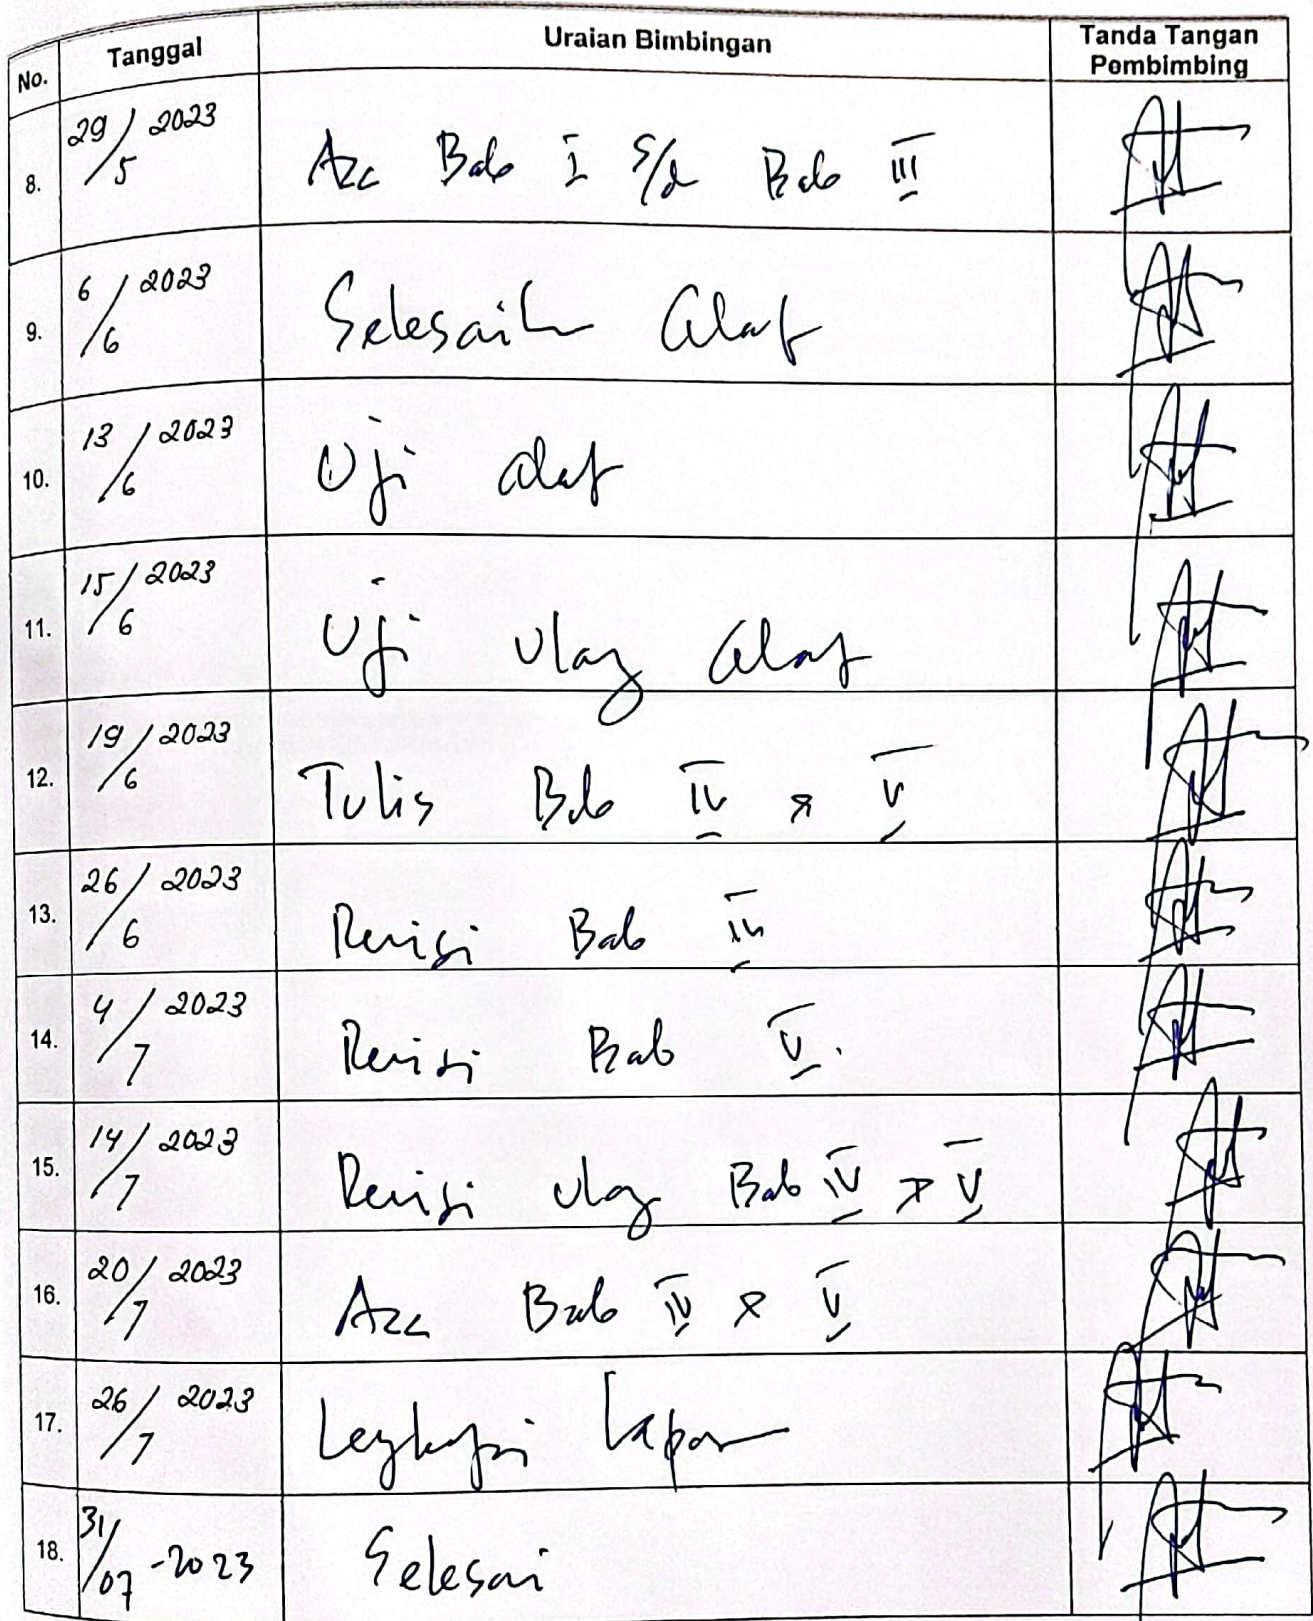 No. Tanggal Uraian Bimbingan Tanda Tangan
Pembimbing
8. 29/5 2023 Acc Bab I s/d Bab III
9. 6/6 2023 Selesaikan alat
10. 13/6 2023 Uji alat
11. 15/6 2023 Uji ulang alat
12. 19/6 2023 Tulis Bab IV & V
13. 26/6 2023 Revisi Bab IV
14. 4/7 2023 Revisi Bab V.
15. 14/7 2023 Revisi ulang Bab IV & V
16. 20/7 2023 Acc Bab IV & V
17. 26/7 2023 Lengkapi Laporan
18. 31/07-2023 Selesai